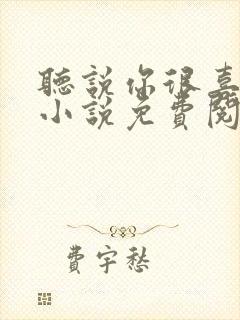 聽說你很喜
小說免費閱
費宇愁